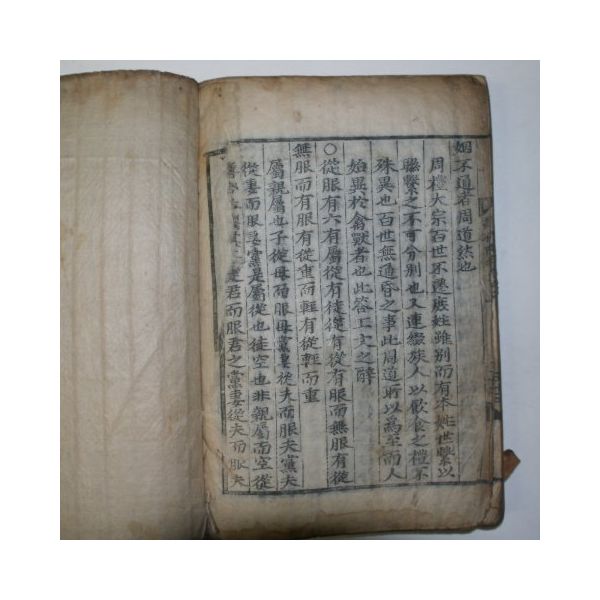 姻不通者周道然也
周禮大宗百世不遷庶姓雖別而有本姓世繫以
聯繫之不可分別也又連綴族人以飮食之禮不
殊異也百世無通昏之事此周道所以爲至而人
始異於禽獸者也此荅上文之辭
○從服有六有屬從有徒從有從有服而無服有從
無服而有服有從重而輕有從輕而重
屬親屬也子從母而服母黨妻從夫而服夫黨夫
從妻而服妻黨是屬從也徒空也非親屬而空從
君而服君之黨妻從夫而服夫